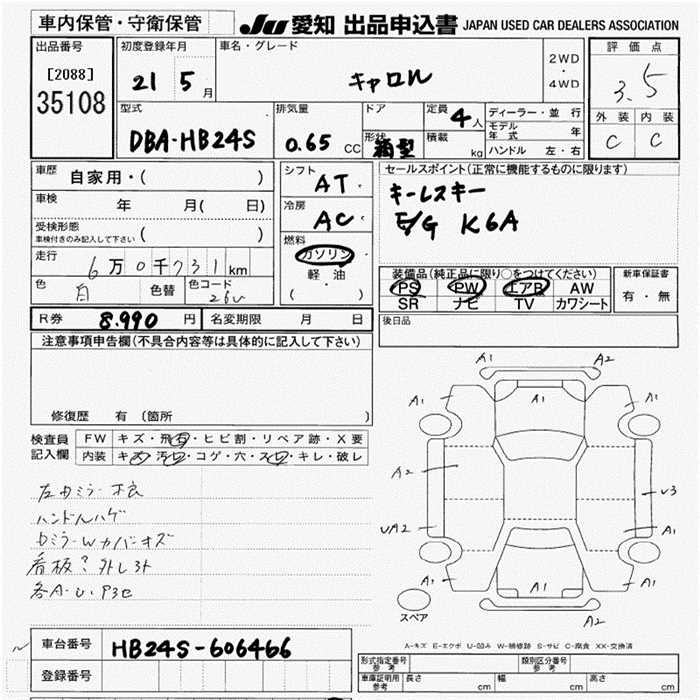 車内保管・守衛保管
JU 愛知 出品申込書 JAPAN USED CAR DEALERS ASSOCIATION
出品番号
[2088]
35108
初度登録年月
21 5月
車名・グレード
キャロル
2WD
・
4WD
評価点
3.5
外装 内装
C C
型式
DBA-HB24S
排気量
0.65 CC
ドア
形状
箱型
定員 4人
積載 kg
ディーラー・並行
モデル年式 年
ハンドル 左・右
車歴 自家用・( )
車検 年 月( 日)
受検形態
車検付きのみ記入して下さい ( )
走行 6万0千731km
色 白 色替 色コード 26U
シフト
AT
冷房
AC
燃料
ガソリン
軽油
( )
セールスポイント(正常に機能するものに限ります)
キーレスキー
E/G K6A
装備品(純正品に限り○をつけてください)
PS PW エアB AW
SR ナビ TV カワシート
新車保証書
有・無
R券 8.990 円 名変期限 月 日
後日品
注意事項申告欄(不具合内容等は具体的に記入して下さい)
修復歴 有 (箇所 )
検査員記入欄
FW キズ・飛石・ヒビ割・リペア跡・X要
内装 キズ・汚れ・コゲ・穴・スレ・キレ・破レ
左カミラー不良
ハンドルハゲ
カミラーWカバーキズ
看板?外し跡
各A.U.P3セ
A1 A2
A1 A1 A1
A2
U3
UA2 A1
A1 A1 A1
A2
スペア
A-キズ E-エクボ U-凹み W-補修跡 S-サビ C-腐食 XX-交換済
車台番号 HB24S-606466
登録番号
形式指定番号
参考
類別区分番号
参考
車庫証明用
参考
長さ cm 幅 cm 高さ cm